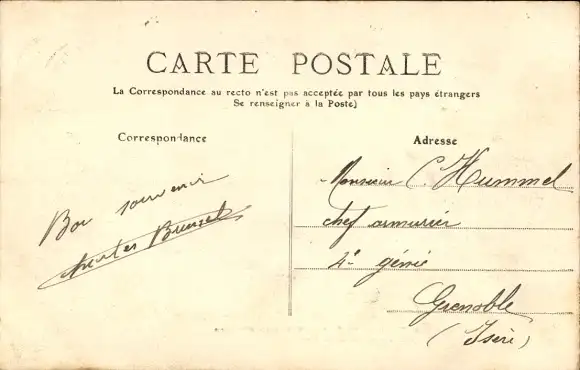 CARTE POSTALE
La Correspondance au recto n'est pas acceptée par tous les pays étrangers
Se renseigner à la Poste)
Correspondance
Bon souvenir
Adresse
Monsieur C. Hummel
chef armurier
4e génie
Grenoble
(Isère)